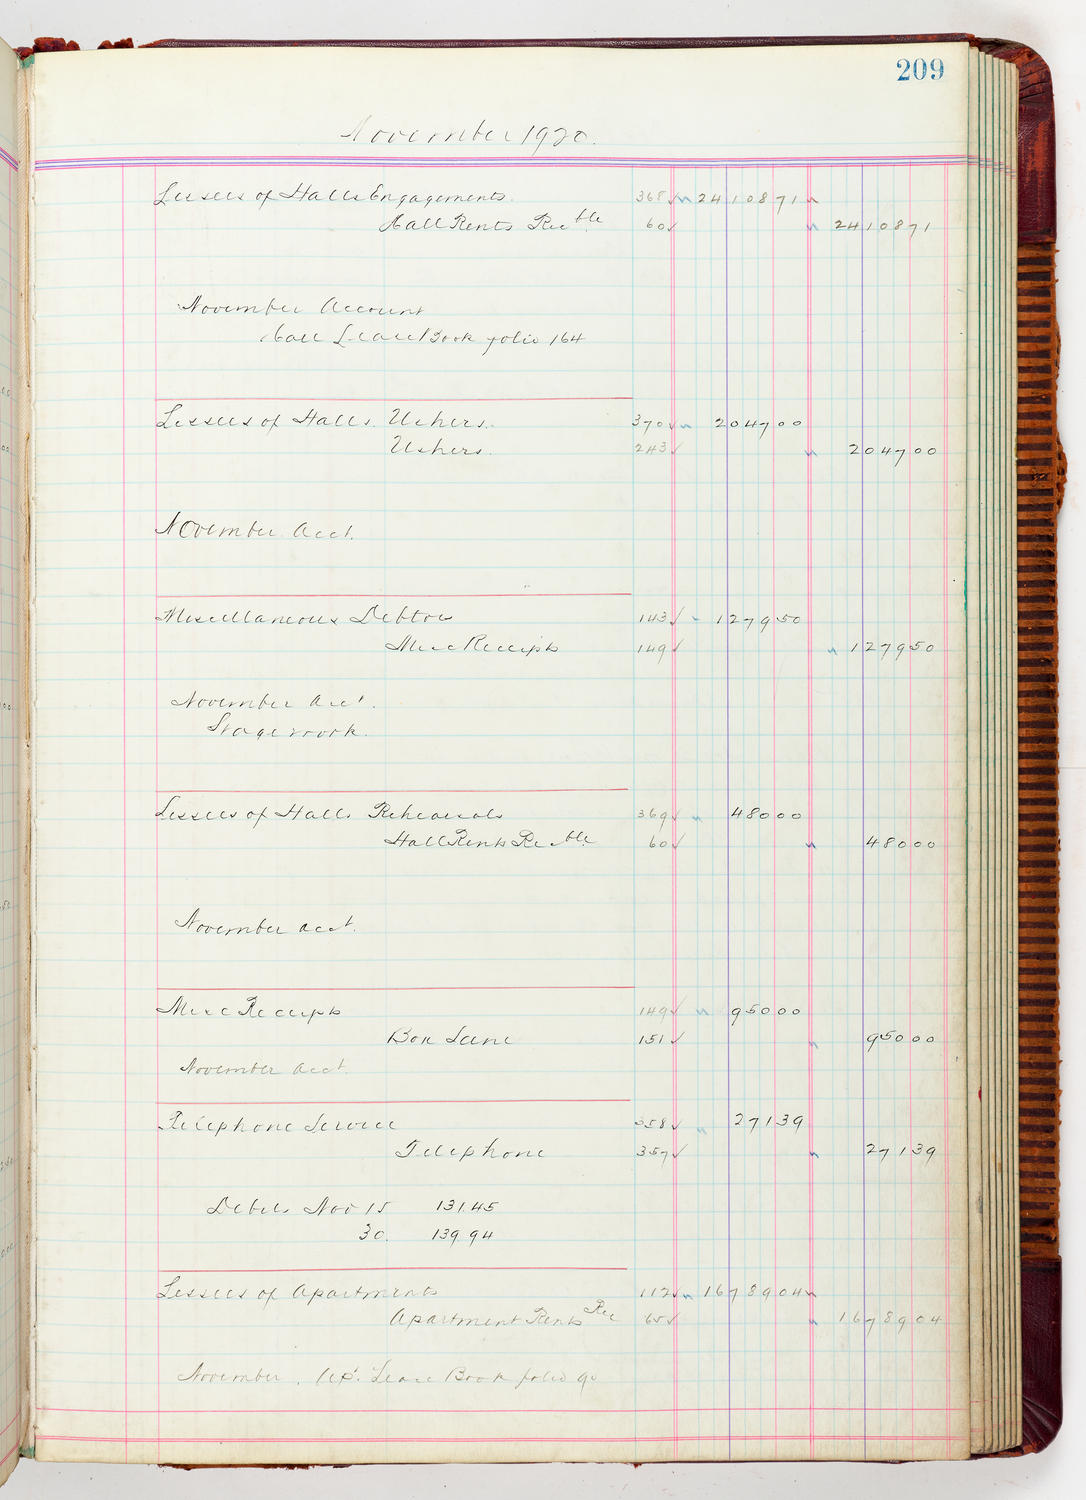 209
November 1920.
Lessees of Halls Engagements. 368 ✓ 24108 71
Hall Rents Rec ble 60 ✓ 24108 71
November Account
Hall Lease Book folio 164
Lessees of Halls Ushers. 370 ✓ 2047 00
Ushers. 243 ✓ 2047 00
November Acct.
Miscellaneous Debtors 143 ✓ 1279 50
Misc Receipts 149 ✓ 1279 50
November Acct.
Stage work.
Lessees of Halls Rehearsals 369 ✓ 480 00
Hall Rents Rec ble 60 ✓ 480 00
November acct.
Misc Receipts 149 ✓ 950 00
151 ✓ 950 00
November Acct.
Telephone Service 358 ✓ 271 39
Telephone 357 ✓ 271 39
Debits Nov 15 131.45
30. 139.94
Lessees of Apartments 112 ✓ 16789 04
Apartment Rents Rec 65 ✓ 16789 04
November. Ap't. Lease Book folio 90